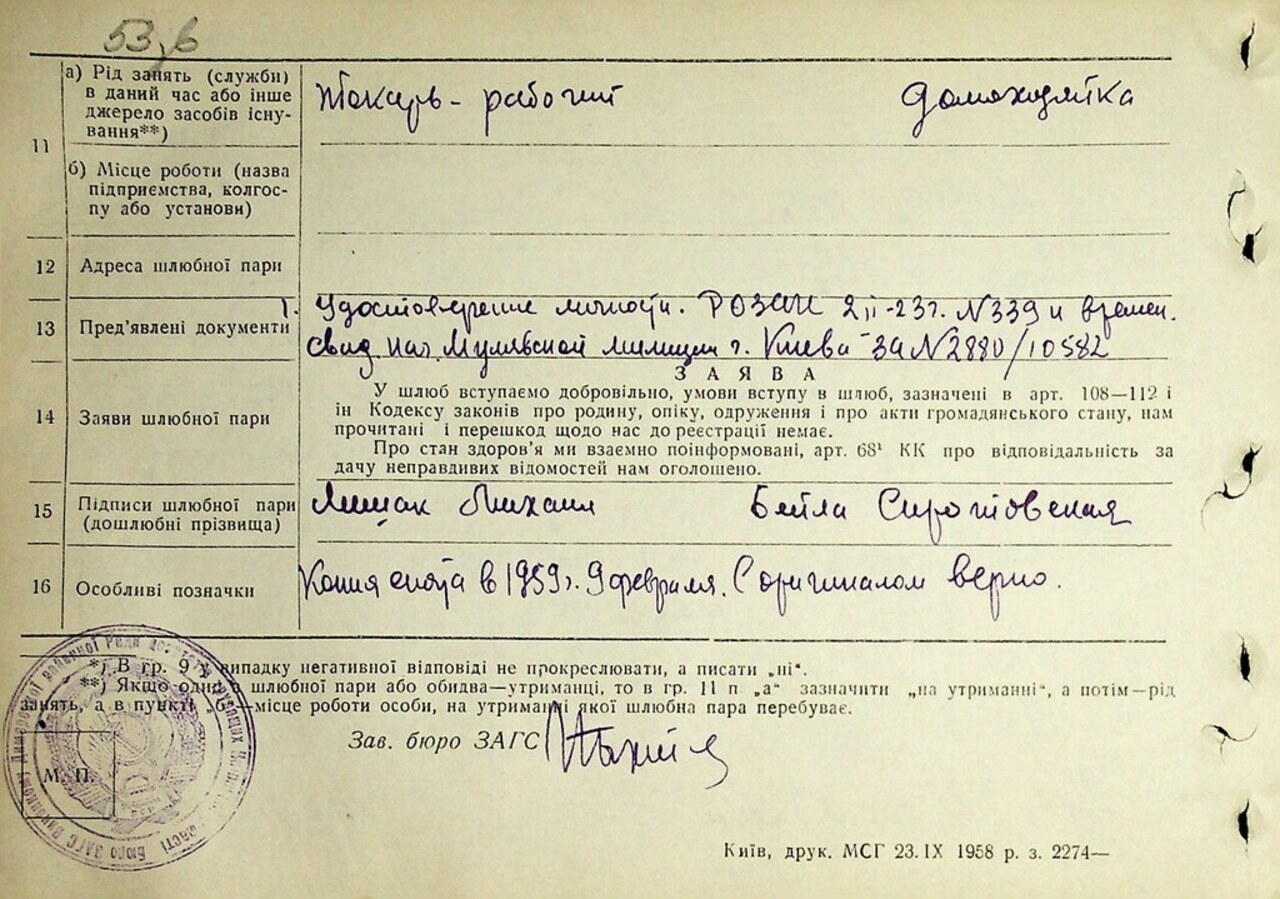 53,6
11
а) Рід занять (служби)
в даний час або інше
джерело засобів існу-
вання**)
Токарь - рабочий
Домохозяйка
б) Місце роботи (назва
підприємства, колгос-
пу або установи)
12
Адреса шлюбної пари
13
Пред'явлені документи
1. Удостоверение личности. РОЗАГС 2 II-23г. N339 и времен.
свид. нач. Мулявской милиции г. Киева за N2880/10582
14
Заяви шлюбної пари
ЗАЯВА
У шлюб вступаємо добровільно, умови вступу в шлюб, зазначені в арт. 108—112 і
ін Кодексу законів про родину, опіку, одруження і про акти громадянського стану, нам
прочитані і перешкод щодо нас до реєстрації немає.
Про стан здоров'я ми взаємно поінформовані, арт. 68¹ КК про відповідальність за
дачу неправдивих відомостей нам оголошено.
15
Підписи шлюбної пари
(дошлюбні прізвища)
Михаил
Бейла Сиротовская
16
Особливі позначки
Копия снята в 1959г. 9 февраля. С оригиналом верно.
*) В гр. 9 у випадку негативної відповіді не прокреслювати, а писати „ні“.
**) Якщо один з шлюбної пари або обидва—утриманці, то в гр. 11 п „а“ зазначити „на утриманні“, а потім—рід
занять, а в пункті „б“—місце роботи особи, на утриманні якої шлюбна пара перебуває.
Зав. бюро ЗАГС
М. П.
Київ, друк. МСГ 23.IX 1958 р. з. 2274—